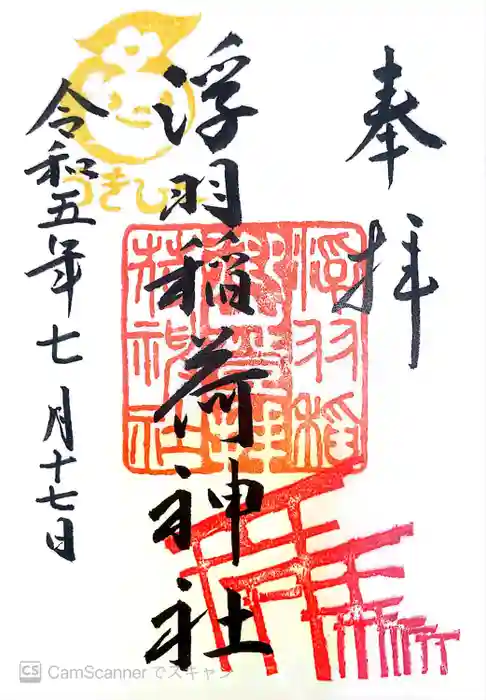 奉拝
浮羽稲荷神社
令和五年七月十七日
うきぴー
CS CamScannerでスキャン